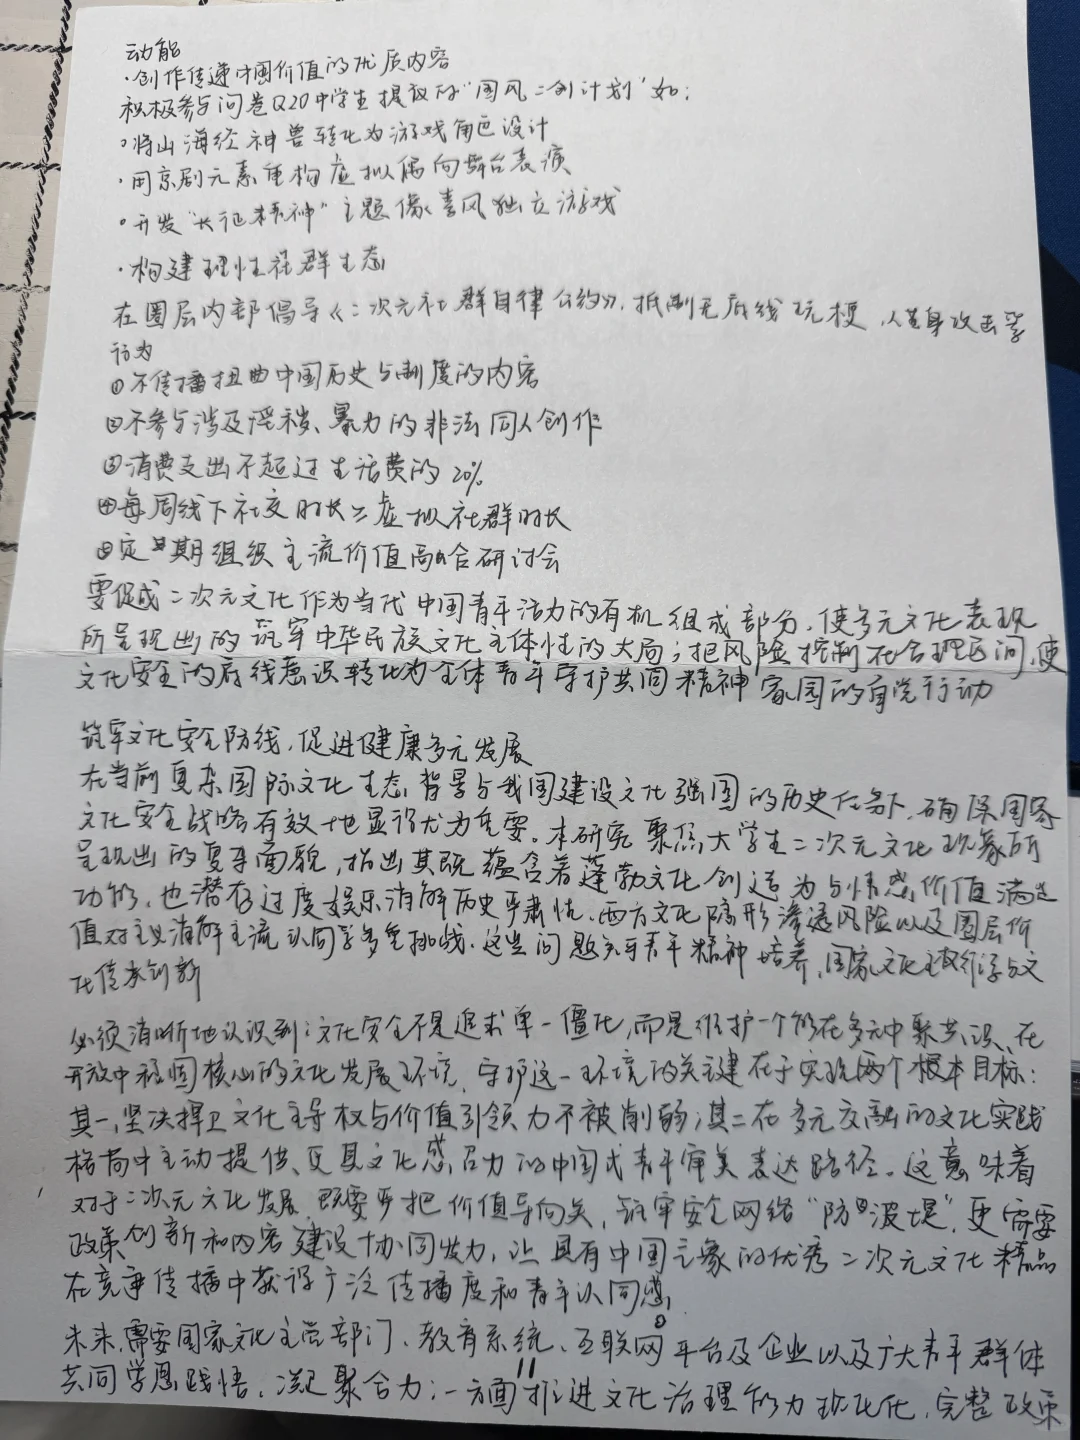 动能
·创作传递中国价值的优质内容
积极参与问卷Q20中学生提议的“国风二创计划”如：
·将山海经神兽转化为游戏角色设计
·用京剧元素重构虚拟偶像舞台表演
·开发“长征精神”主题像素风独立游戏
·构建理性社群生态
在圈层内部倡导《二次元社群自律公约》，抵制无底线玩梗，人身攻击等
行为
①不传播扭曲中国历史与制度的内容
②不参与涉及淫秽、暴力的非法同人创作
③消费支出不超过生活费的20%
④每周线下社交时长≥虚拟社群时长
⑤定期组织主流价值融合研讨会
要促成二次元文化作为当代中国青年活力的有机组成部分，使多元文化表现
所呈现出的筑牢中华民族文化主体性的大局；把风险控制在合理区间，使
文化安全的底线意识转化为全体青年守护共同精神家园的自觉行动
筑牢文化安全防线，促进健康多元发展
在当前复杂国际文化生态背景与我国建设文化强国的历史任务下，确保国家
文化安全战略有效地显得尤为重要。本研究聚焦大学生二次元文化现象所
呈现出的复杂面貌，指出其既蕴含着蓬勃文化创造力与情感价值满足
功能，也潜存过度娱乐消解历史严肃性、西方文化隐形渗透风险以及圈层价
值对主流认同等多重挑战。这些问题关乎青年精神培养，国家文化与文
化传承创新
必须清晰地认识到：文化安全不是追求单一僵化，而是维护一个能在多元中聚共识、在
开放中稳固核心的文化发展环境，守护这一环境的关键在于实现两个根本目标：
其一，坚决捍卫文化主导权与价值引领力不被削弱；其二在多元交融的文化实践
格局中主动提供更具文化感召力的中国式青年审美表达路径。这意味着
对于二次元文化发展，既要严把价值导向关，筑牢安全网络“防波堤”，更需要
政策创新和内容建设协同发力，让具有中国气象的优秀二次元文化精品
在竞争传播中获得广泛传播度和青年认同感。
未来，需要国家文化主管部门、教育系统、互联网平台及企业以及广大青年群体
共同学思践悟，凝聚合力：一方面推进文化治理能力现代化，完整政策